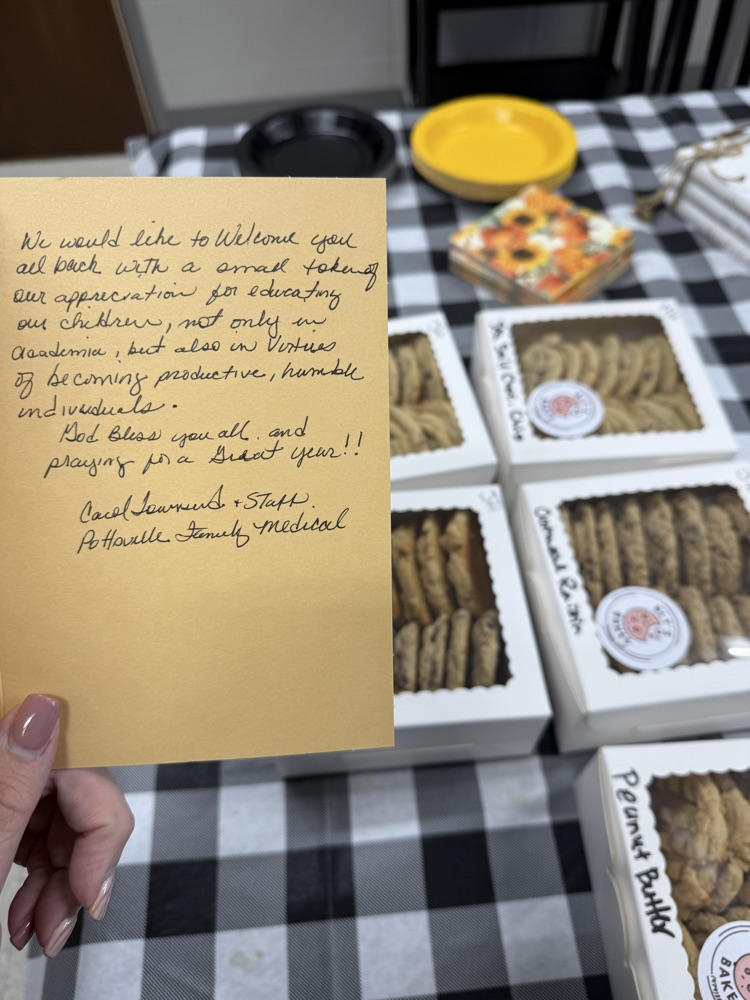 We would like to Welcome you
all back with a small token of
our appreciation for educating
our children, not only in
academia, but also in Virtues
of becoming productive, humble
individuals.
God Bless you all and
praying for a Great year!!
Carol Townsend + Staff
Pottsville Family Medical
Oatmeal Raisin
Peanut Butter